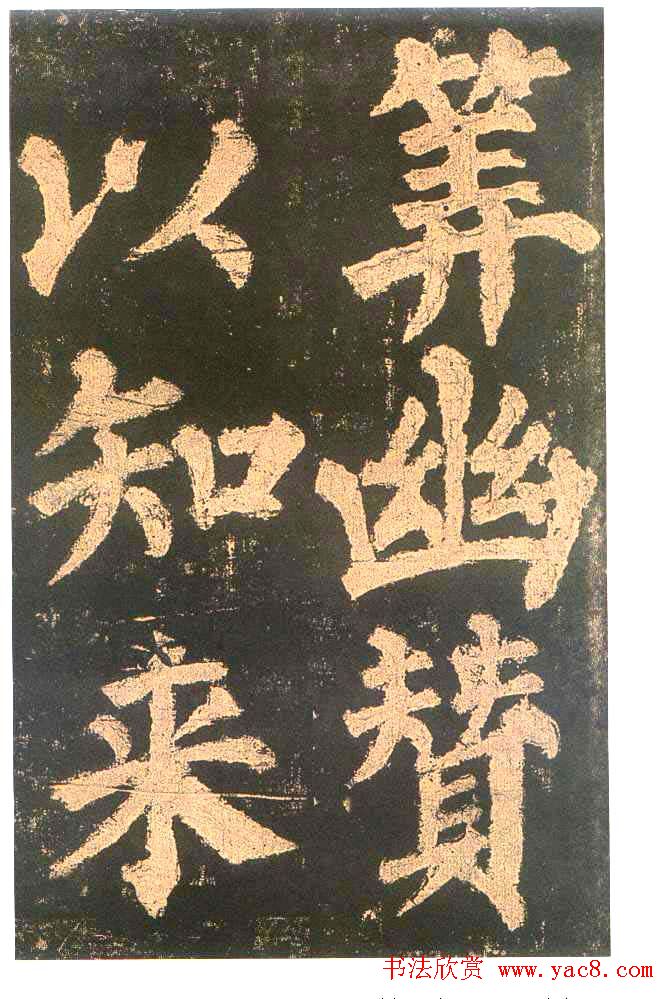 筭幽賛
以知来
书法欣赏 www.yac8.com